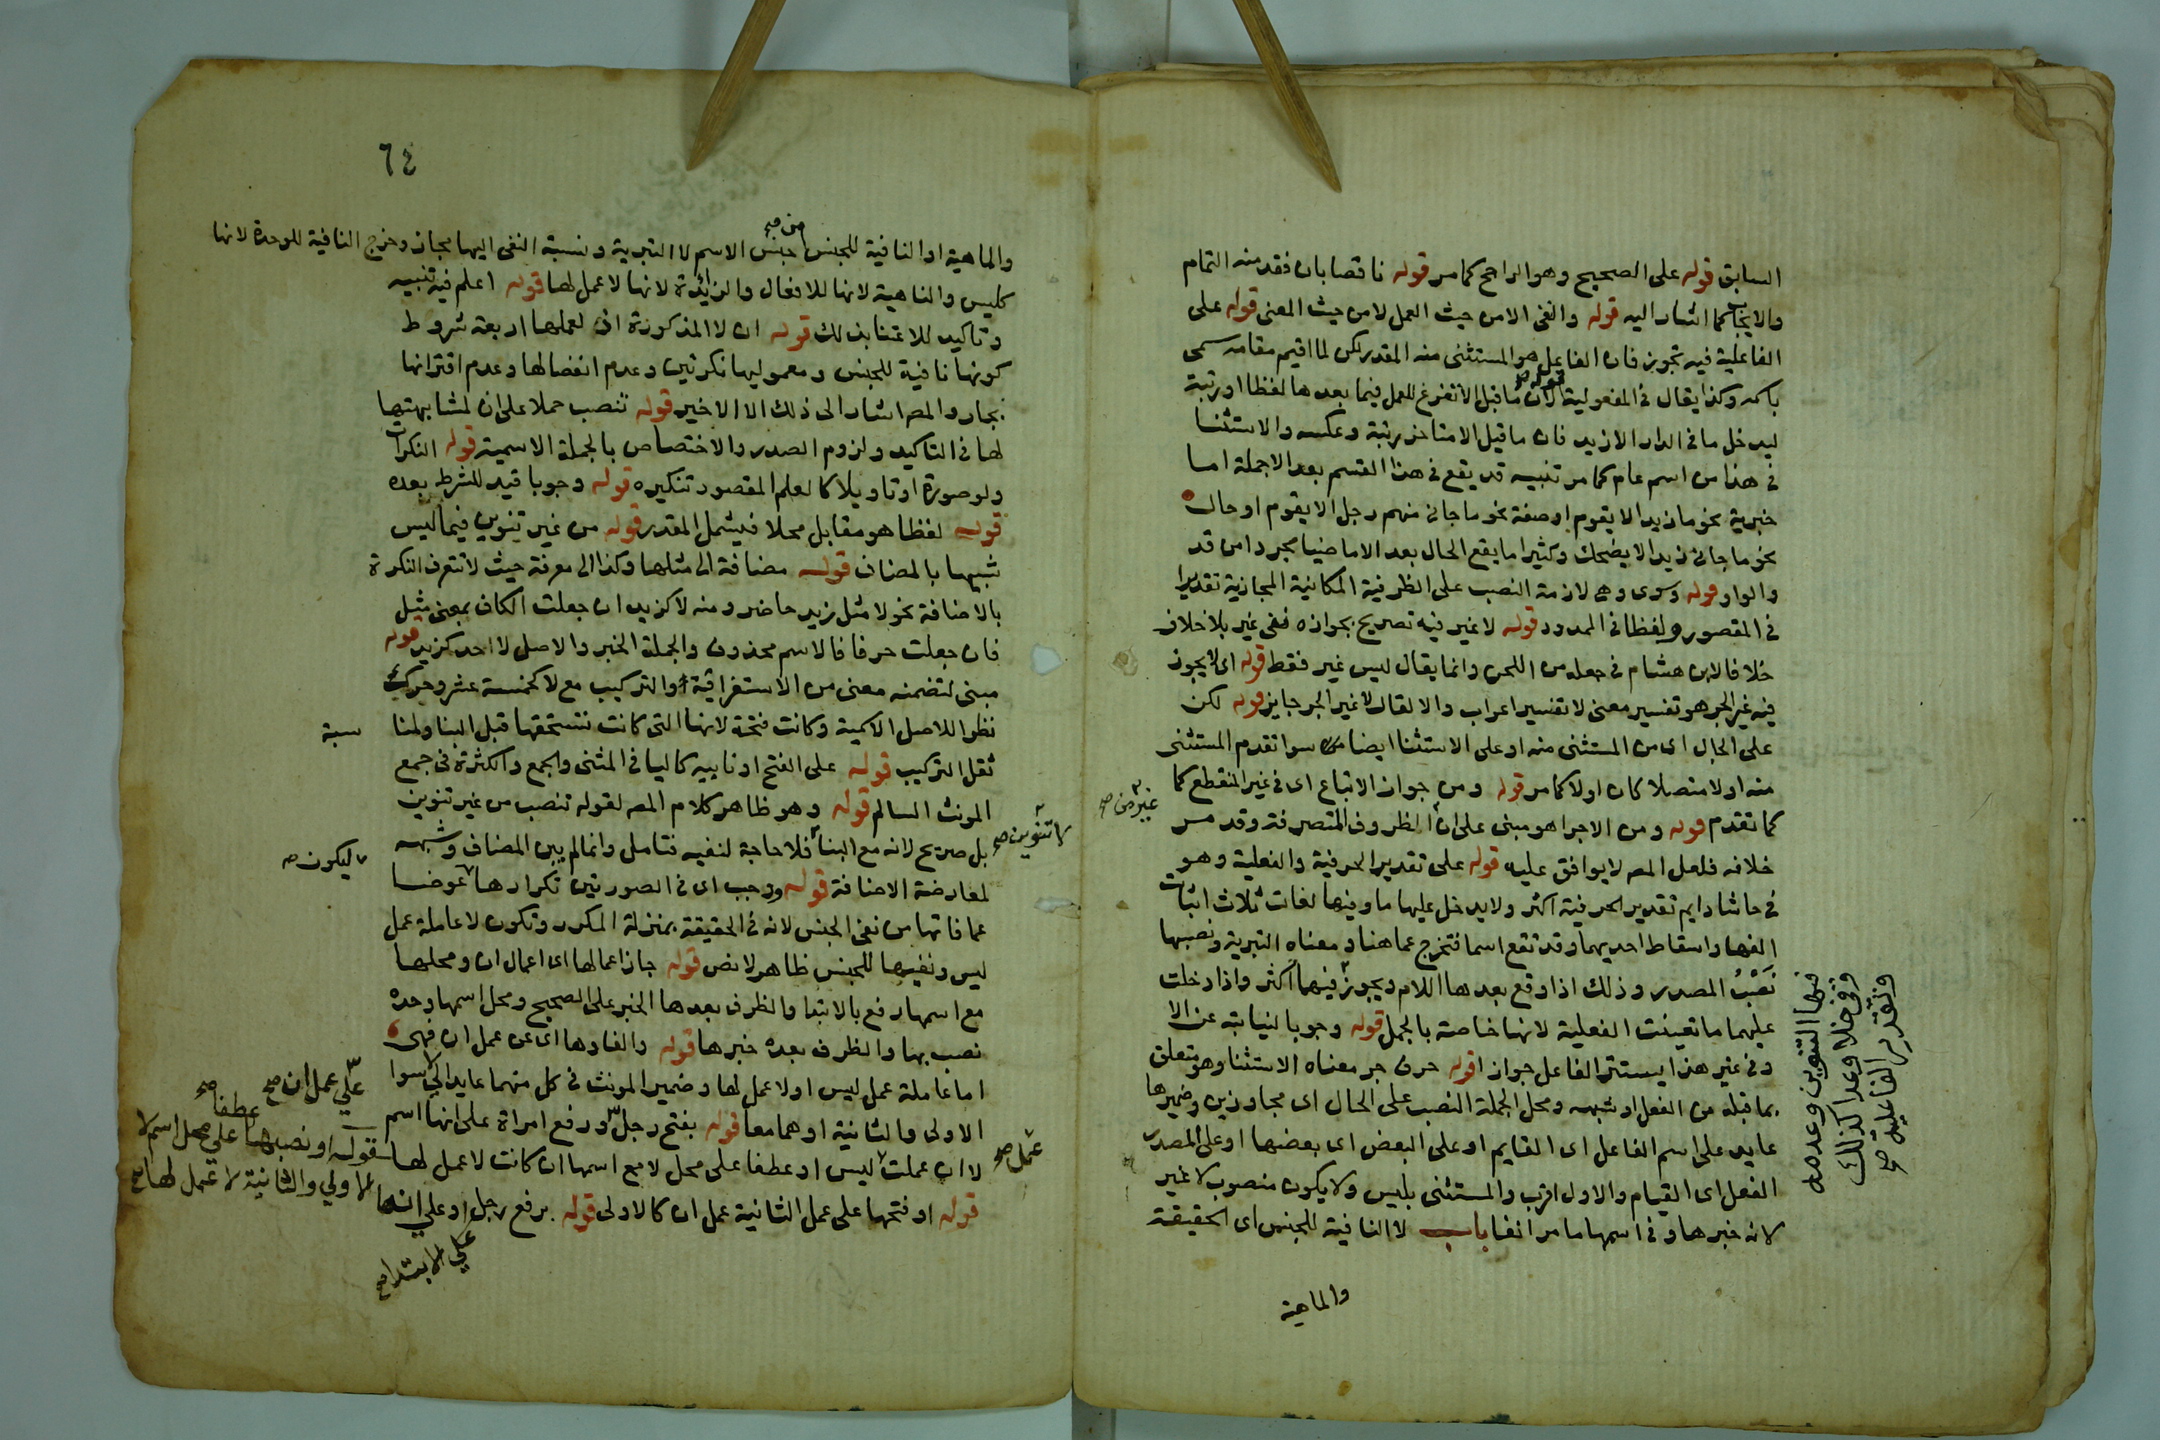 السابق قوله على الصحيح وهو الراجح كما مر قوله ناقصا بان فقد منه التمام
والايجاب كما اشار اليه قوله والغى الا من حيث العمل لا من حيث المعنى قوله على
الفاعلية فيه تجوز فان الفاعل هو المستثنى منه المقدر لكن لما اقيم مقامه سمى
باسمه وكذا يقال فى المفعولية قوله لان ما قبل الا تفرغ للعمل فيما بعدها لفظا او رتبة
ليدخل ما فى الدار الا زيد فان ما قبل الا متاخر رتبة وعكسه والاستثنا
فى هذا من اسم عام كما مر تنبيه قد يقع فى هذا القسم بعد الا جملة اما
خبرية نحو ما زيد الا يقوم او صفة نحو ما جانى منهم رجل الا يقوم او حال
نحو ما جانى زيد الا يضحك وكثيرا ما يقع الحال بعد الا ماضيا مجردا من قد
والواو قوله وسوى وهى لازمة النصب على الظرفية المكانية المجازية تقديرا
فى المقصور ولفظا فى الممدود قوله لا غير فيه تصريح بجوازه ففى غير بلا خلاف
خلافا لابن هشام فى جعله من اللحن وانما يقال ليس غير فقط قوله اى لا يجوز
فيه غير الجر هو تفسير معنى لا تفسير اعراب والا لقال لا غير الجر جايز قوله لكن
على الحال اى من المستثنى منه او على الاستثنا ايضا سوا تقدم المستثنى
منه او لا متصلا كان او لا كما مر قوله ومن جواز الاتباع اى فى غير المنقطع كما
كما تقدم قوله ومن الاجرا هو مبنى على ان الظروف المتصرفة وقد مر
خلافه فلعل المصـ لا يوافق عليه قوله على تقدير الحرفية والفعلية وهو
فى حاشا دايم تقدير الحرفية اكثر ولا يدخل عليها ما وفيها لغات ثلاث اثبات
الفها واسقاط احديهما وقد تقع اسما فتخرج عما هنا ومعناه التبرية ونصبها
نَصْبُ المصدر وذلك اذا وقع بعدها اللام ويجوز فيهما اكثر واذا دخلت
عليهما ما تعينت الفعلية لانها خاصة بالجمل قوله وجوبا لنيابته عن الا
وفى غير هذا يستتر الفاعل جوازا قوله حرف جر معناه الاستثنا وهو متعلق
بما قبله من الفعل او شبهه ومحل الجملة النصب على الحال اى مجاوزين وضميرها
عايد على اسم الفاعل اى القايم او على البعض اى بعضها او على المصدر
الفعل اى القيام والاول اقرب والمستثنى بليس ولا يكون منصوب لا غير
لانه خبرها وفى اسمها ما مر انفا باب لا النافية للجنس اى الحقيقة
والماهية
غير من صح
فيها التنوين وعدمه
وفى خلا وعدا كذلك
وتقدير الفاعلية صح
٦٤
من صح
والماهية او النافية للجنس جنس الاسم لا التبرية ونسبة النفى اليها مجاز وخرج النافية للوحدة لانها
كليس والناهية لانها للافعال والزايدة لانها لا عمل لها قوله اعلم فيه تنبيه
وتاكيد للاعتنا بذلك قوله ان لا المذكورة اى لعملها اربعة شروط
كونها نافية للجنس ومعموليها نكرتين وعدم انفصالها وعدم اقترانها
بجار والمصـ اشار الى ذلك الا الاخير قوله تنصب حملا على ان لمشابهتها
لها فى التاكيد ولزوم الصدر والاختصاص بالجملة الاسمية قوله النكرات
ولو صورة او تاويلا كالعلم المقصود تنكيره قوله وجوبا قيد للشرط بعده
قوله لفظا هو مقابل محلا فيشمل المقدر قوله من غير تنوين فيما ليس
شبيها بالمضاف قوله مضافة الى مثلها وكذا الى معرفة حيث لا تتعرف النكرة
بالاضافة نحو لا مثل زيد حاضر ومنه لا كزيد ان جعلت الكاف بمعنى مثل
فان جعلت حرفا فالاسم محذوف والجملة الخبر والاصل لا احد كزيد قوله
مبنى لتضمنه معنى من الاستغراقية او التركيب مع لا كخمسة عشر وحركت
نظرا للاصل الاسمية وكانت فتحة لانها التى كانت تستحقها قبل البنا ولمنا
سبة
ثقل التركيب قوله على الفتح او نايبه كاليا فى المثنى والجمع والكثرة فى جمع
المونث السالم قوله وهو ظاهر كلام المصـ لقوله تنصب من غير تنوين
لا تنوين صح
بل صريح لانه مع البنا فلا حاجة لنفيه فتامل وانما لم يبن المضاف وشبهه
ليكون صح
لمعارضة الاضافة قوله ووجب اى فى الصورتين تكرارها عوضا
عما فاتها من نفى الجنس لانه فى الحقيقة بمنزلة المكرر وتكون لا عاملة عمل
ليس ونفيها للجنس ظاهر لا نص قوله جاز اعمالها اى اعمال ان ومحلها
مع اسمها رفع بالابتدا والظرف بعدها الخبر على الصحيح ومحل اسمها وحده
نصب بها والظرف بعده خبرها قوله والغاوها اى عن عمل ان فهى
اما عاملة عمل ليس او لا عمل لها وضمير المونث فى كل منهما عايد الى لا سوا
على عمل ان صح
الاولى والثانية او هما معا قوله بفتح رجل ورفع امراة على انها اسم
عطفا صح
لا ان عملت ليس او عطفا على محل لا مع اسمها ان كانت لا عمل لها
عمل صح
قوله او نصبها على محل اسم لا
الاولى والثانية لا عمل لها صح
قوله او فتحها على عمل الثانية عمل ان كالاولى قوله برفع رجل او على انها
على الابتدا صح